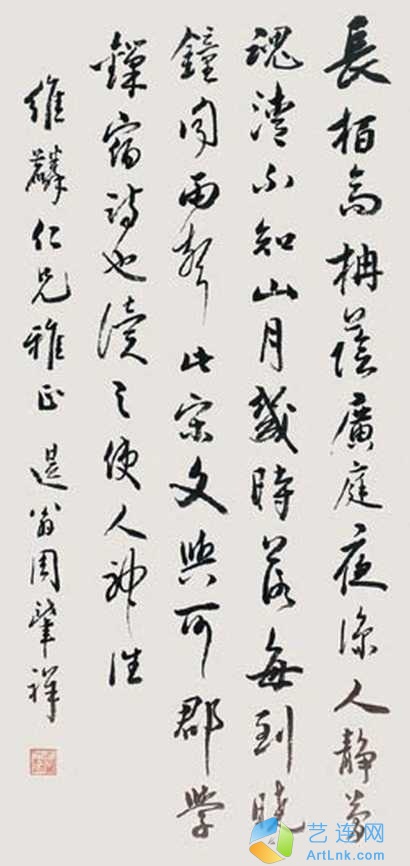 長栢高枏蔭廣庭夜涼人靜夢
魂清不知山月幾時落每到曉
鐘聞雨聲此宋文與可郡學
鏁宿詩也讀之使人神往
維麟仁兄雅正 退翁周肇祥
艺连网
ArtLnk.com